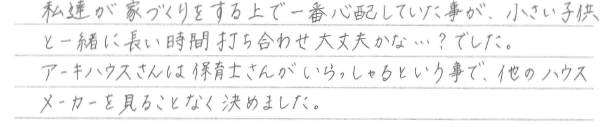 私達が家づくりをする上で一番心配していた事が、小さい子供
と一緒に長い時間打ち合わせ大丈夫かな…？でした。
アーキハウスさんは保育士さんがいらっしゃるという事で、他のハウス
メーカーを見ることなく決めました。